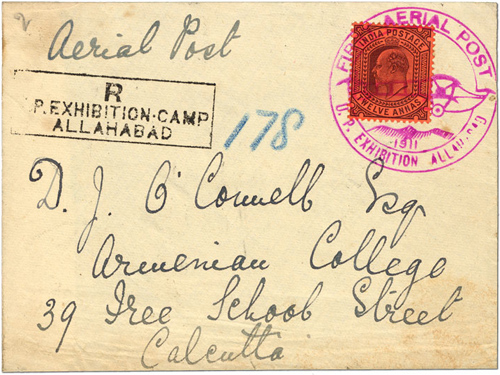 2
Aerial Post
FIRST AERIAL POST
1911
U.P. EXHIBITION ALLAHABAD
INDIA POSTAGE
TWELVE ANNAS
R
P. EXHIBITION-CAMP
ALLAHABAD
178
D. J. O'Connell Esq
Armenian College
39 Free School Street
Calcutta